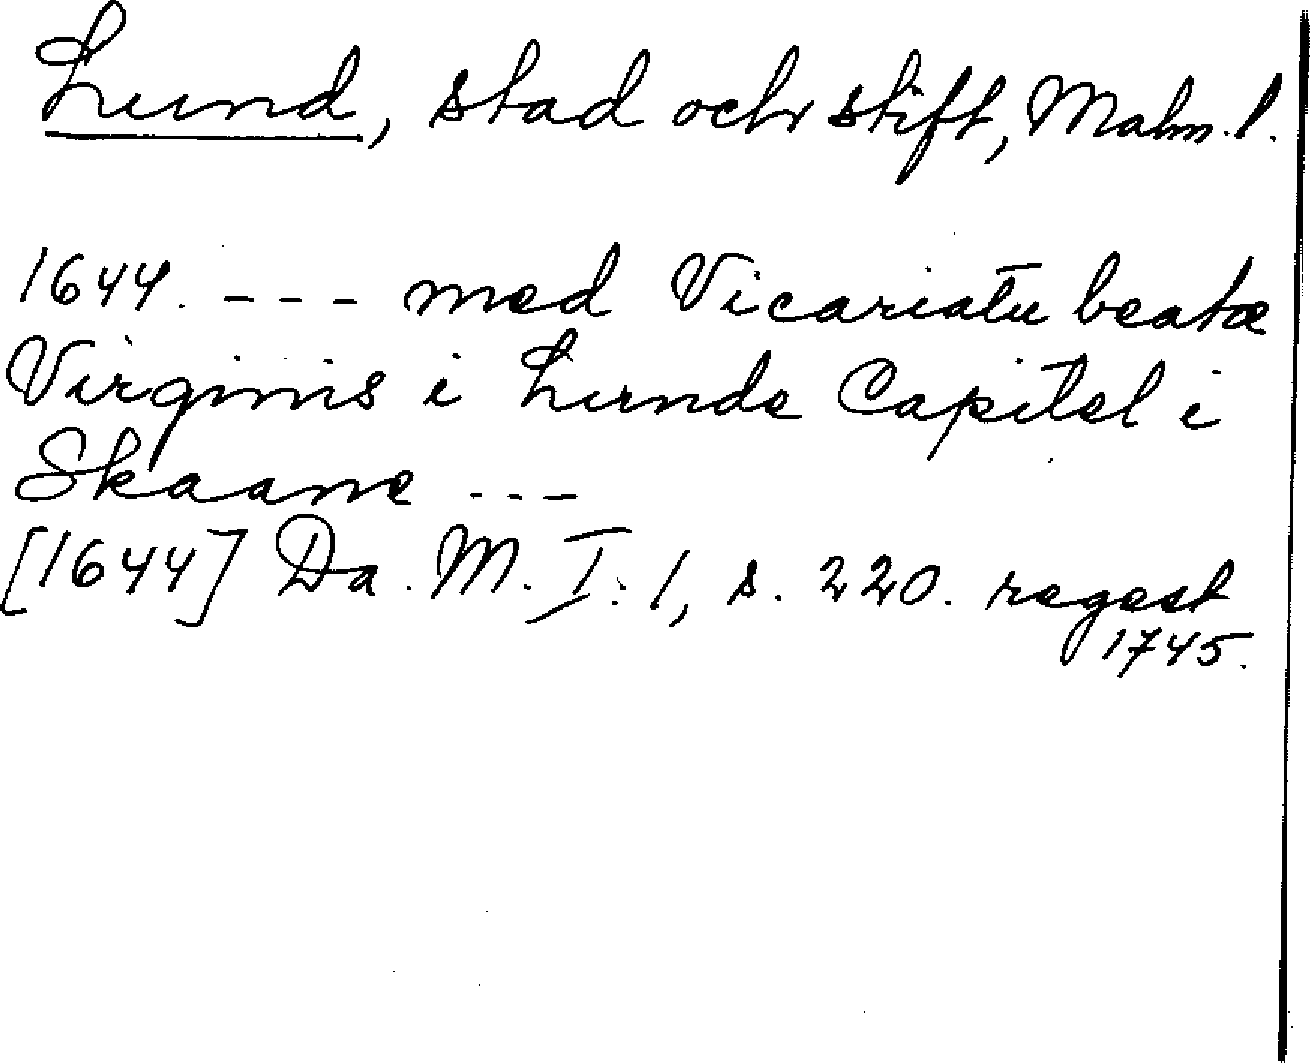 Lund, stad och stift, Malm. l.
1644. --- med Vicariatu beatæ
Virginis i Lunde Capitel i
Skaane ---
[1644] Da. M. I: 1, s. 220. regest
1745.